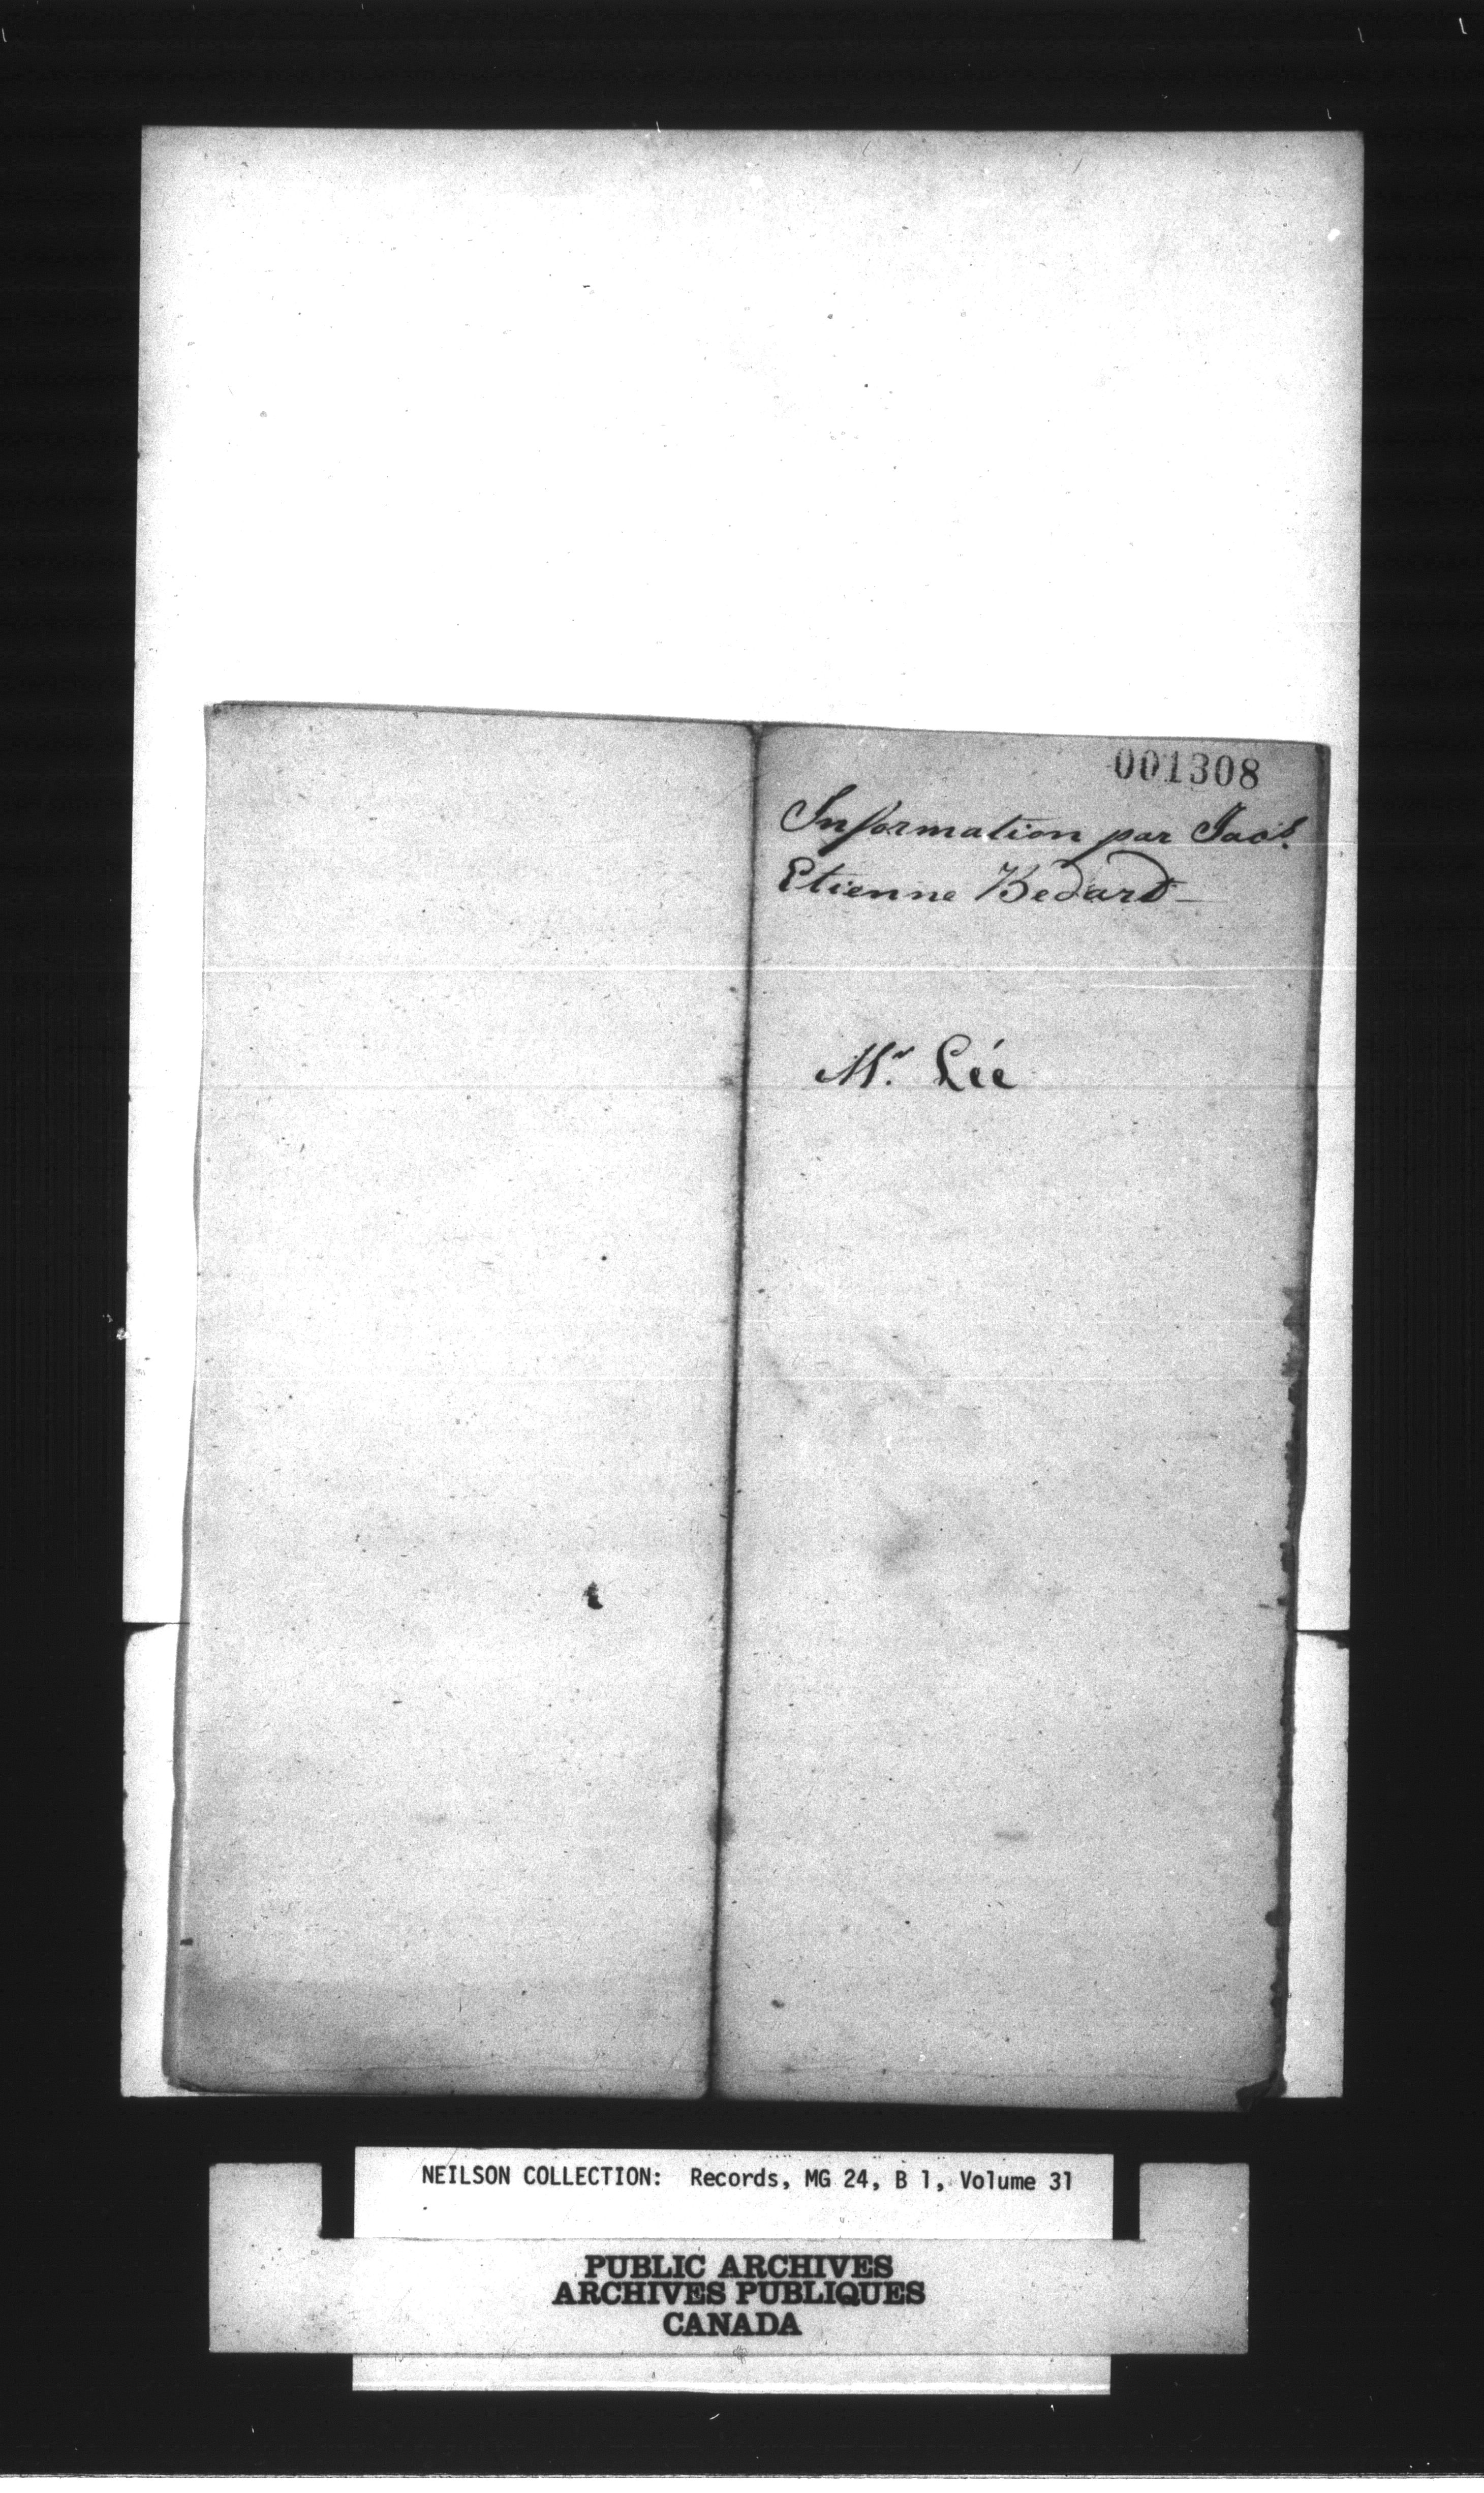 001308
Information par Jacs.
Etienne Bedard—
Mr. Lée
NEILSON COLLECTION: Records, MG 24, B 1, Volume 31
PUBLIC ARCHIVES
ARCHIVES PUBLIQUES
CANADA